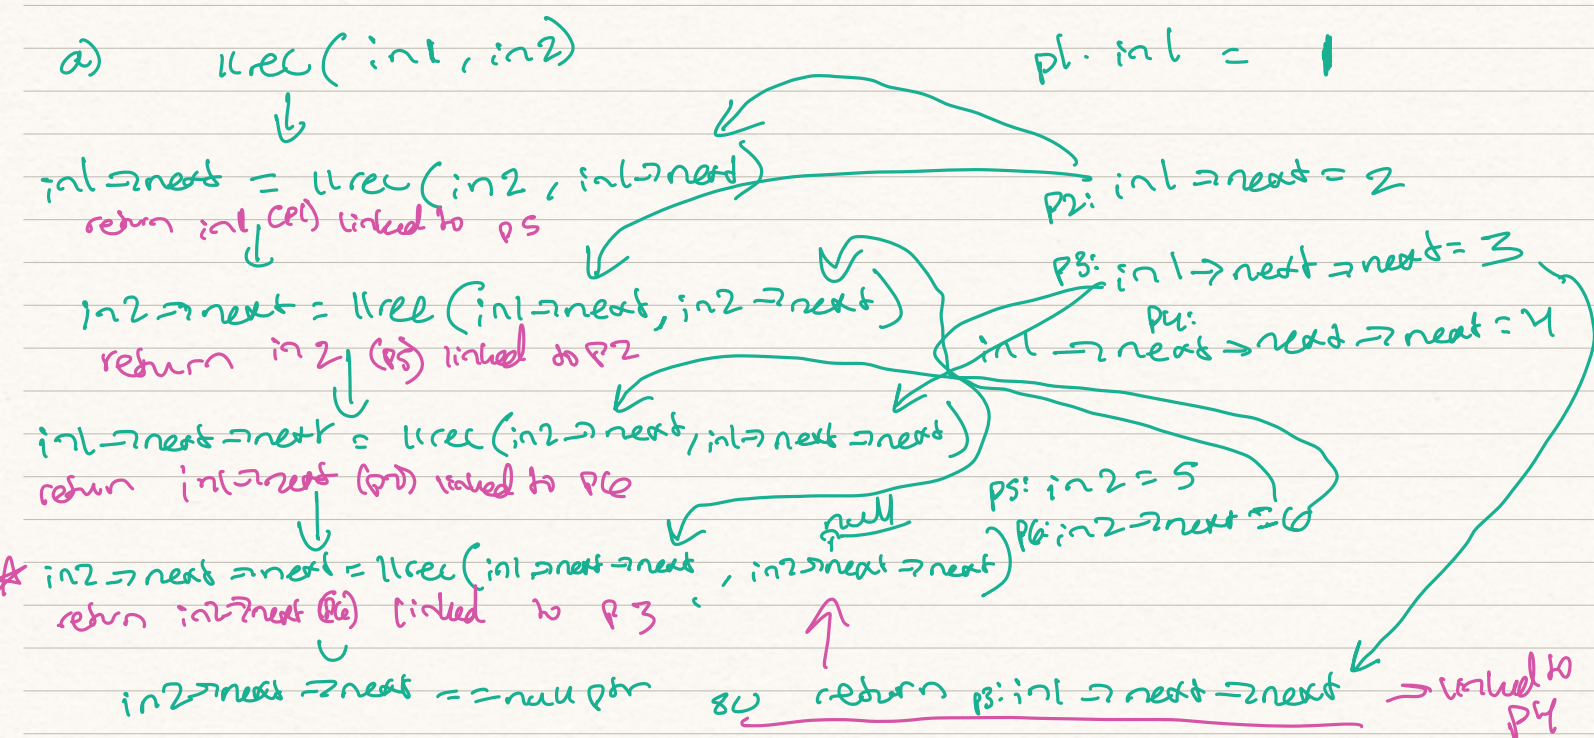 a) llrec(in1, in2)
p1: in1 = 1
in1->next = llrec(in2, in1->next)
return in1 (p1) linked to p5
p2: in1->next = 2
p3: in1->next->next = 3
in2->next = llrec(in1->next, in2->next)
return in2 (p5) linked to p2
p4:
in1->next->next->next = 4
in1->next->next = llrec(in2->next, in1->next->next)
return in1->next (p2) linked to p6
p5: in2 = 5
p6: in2->next = 6
null
in2->next->next = llrec(in1->next->next, in2->next->next)
return in2->next (p6) linked to p3
in2->next->next == nullptr so return p3: in1->next->next -> linked to p4